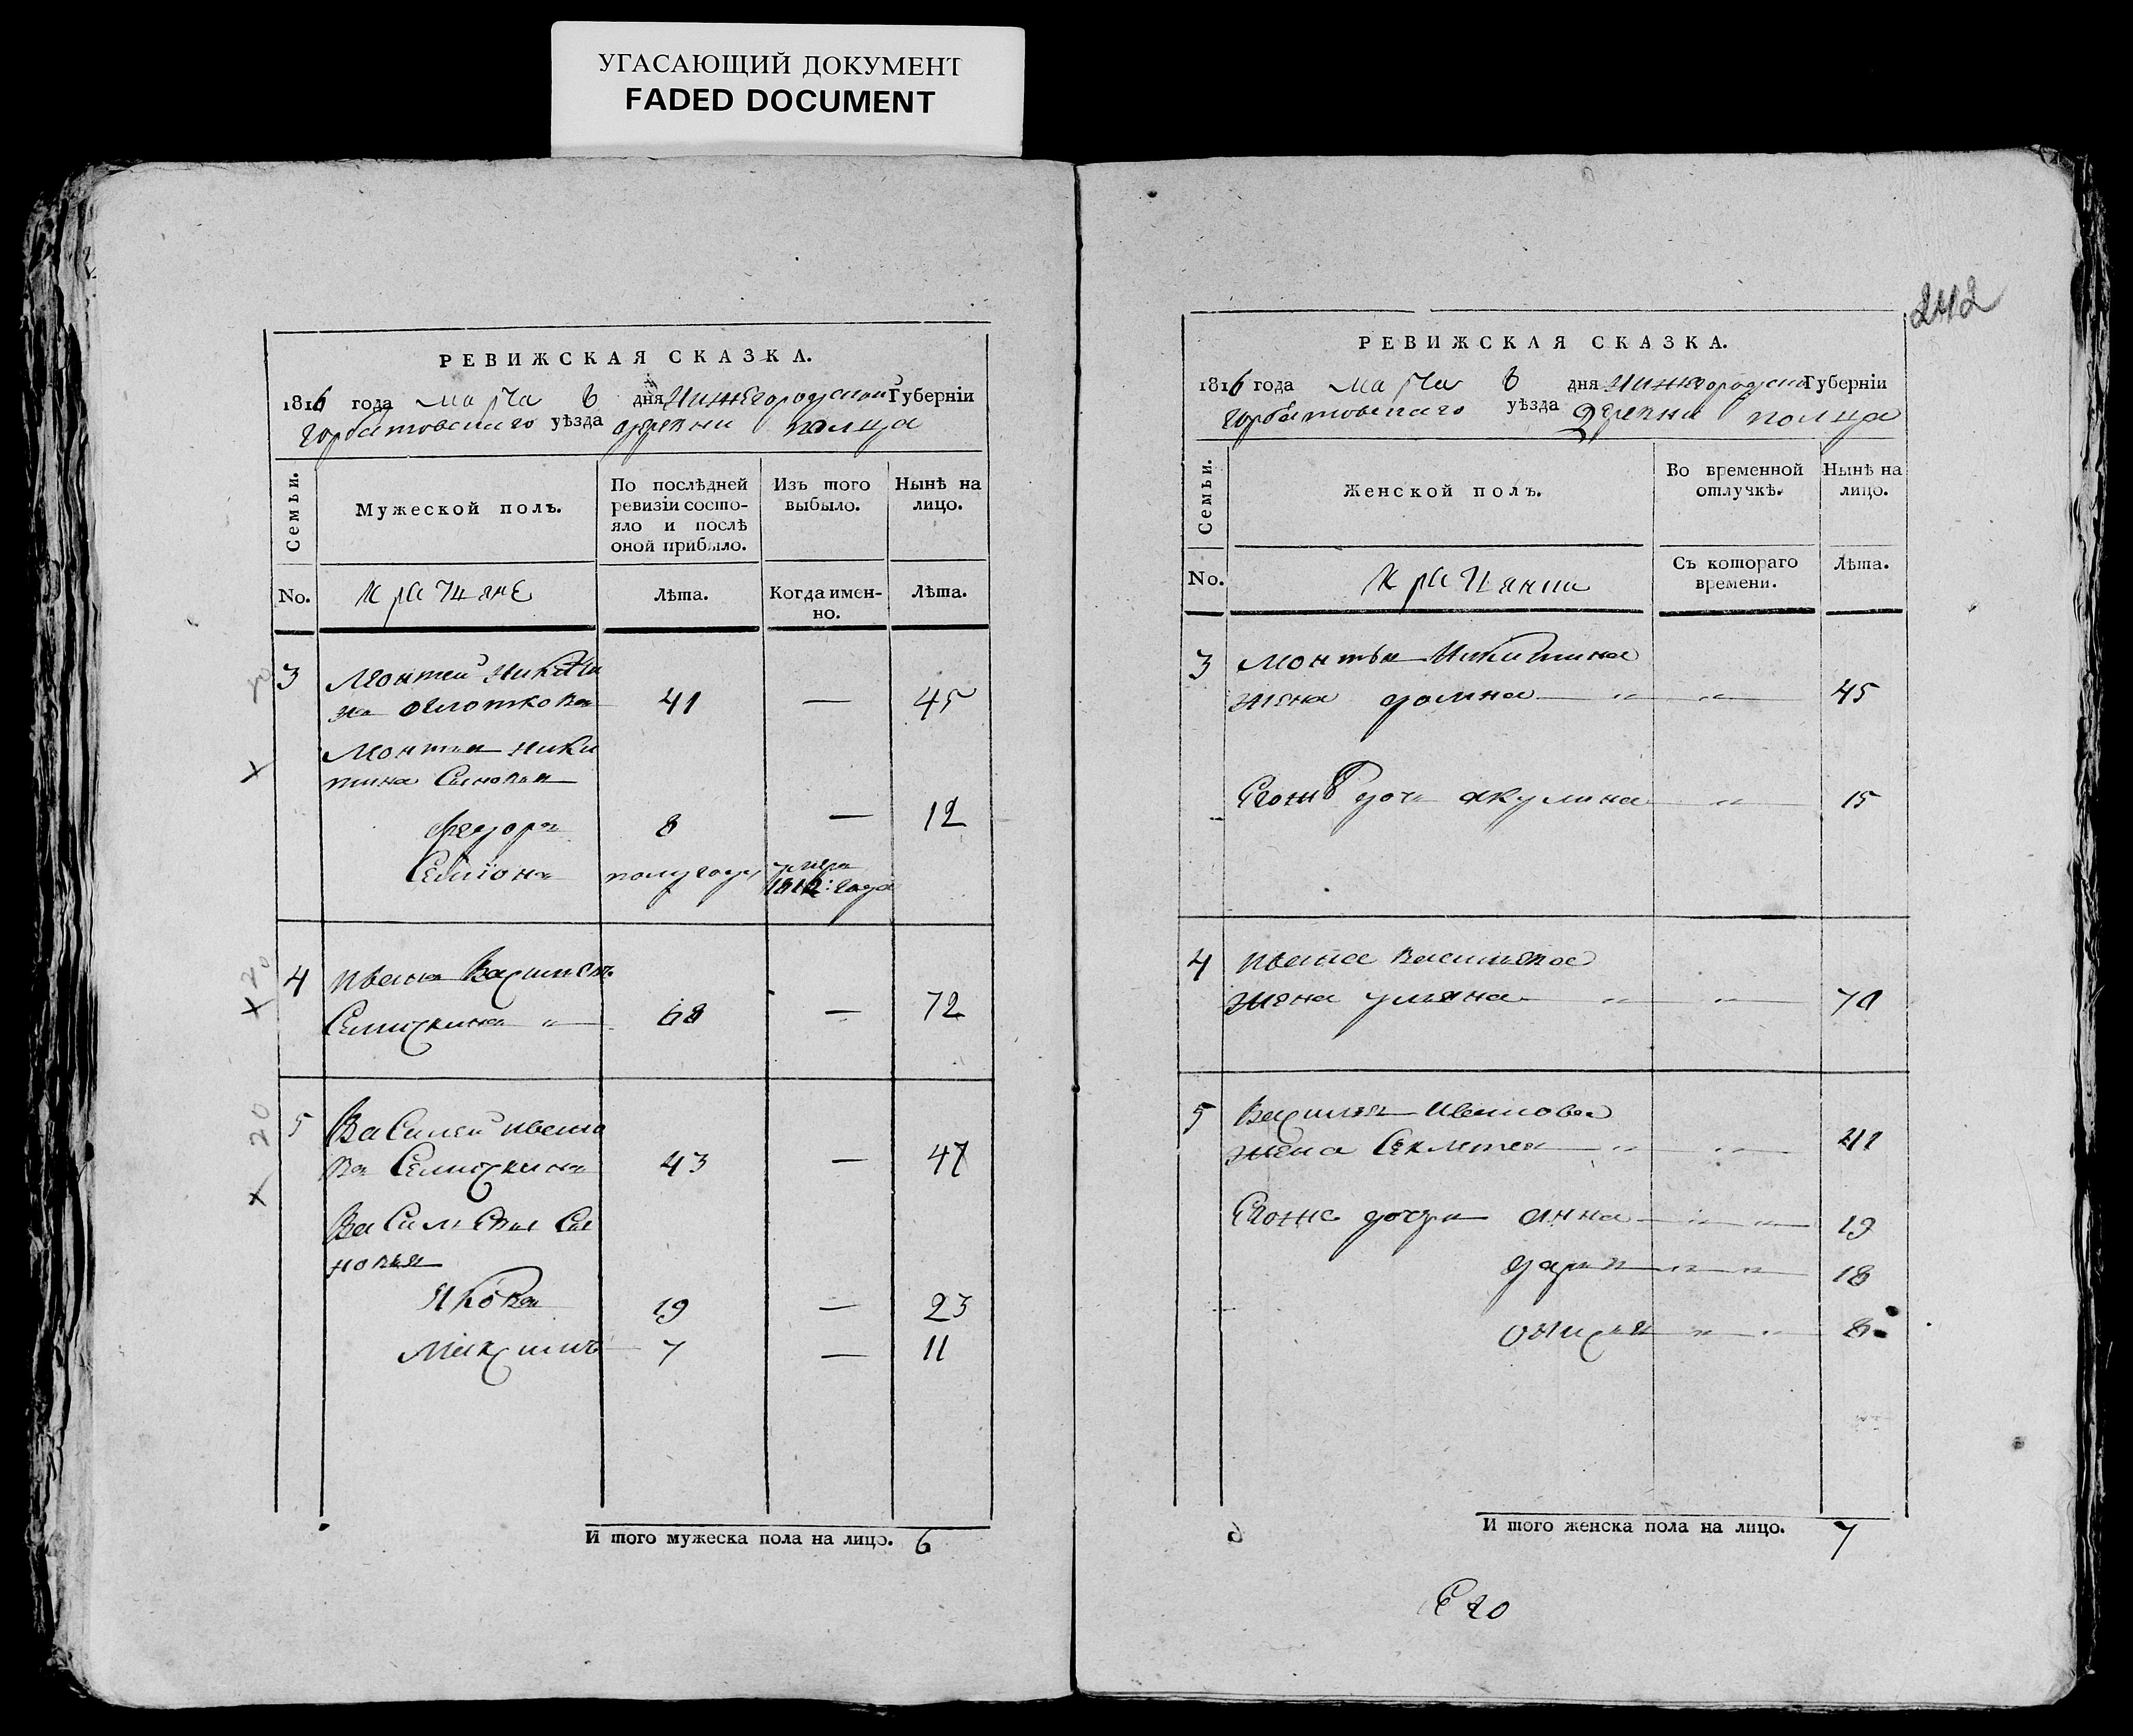 УГАСАЮЩИЙ ДОКУМЕНТ
FADED DOCUMENT
РЕВИЖСКАЯ СКАЗКА.
1816 года марта 8 дня Нижегородской Губернїи
горбатовскаго уѣзда деревни полца
Семьи.
Мужеской полъ.
По послѣдней ревизїи состо-
яло и послѣ
оной прибыло.
Изъ того
выбыло.
Нынѣ на
лицо.
No.
Лѣта.
Когда имен-
но.
Лѣта.
3 Леонтей Никити
41 — 45
Леонтья ники
тина Сыновья
Федоръ 8 — 12
Семіонъ полугоду умре
1812: года
4 Иванъ Васильевъ
68 — 72
5 Василей Ивано
въ 43 — 47
Васильевы Сы
новья
Яковъ 19 — 23
Максимъ 7 — 11
И того мужеска пола на лицо. 6
242
РЕВИЖСКАЯ СКАЗКА.
1816 года марта 8 дня Нижегородской Губернїи
горбатовскаго уѣзда деревни полца
Семьи.
Женской полъ.
Во временной
отлучкѣ.
Нынѣ на
лицо.
No.
Съ котораго
времени.
Лѣта.
3 Леонтья Никитина
жена домна 45
Егожъ дочь акулина 15
4 Ивана Васильева
жена ульяна 70
5 Василья Иванова
жена Секлетея 41
Егоже дочери анна 19
дарья 18
8
И того женска пола на лицо. 7